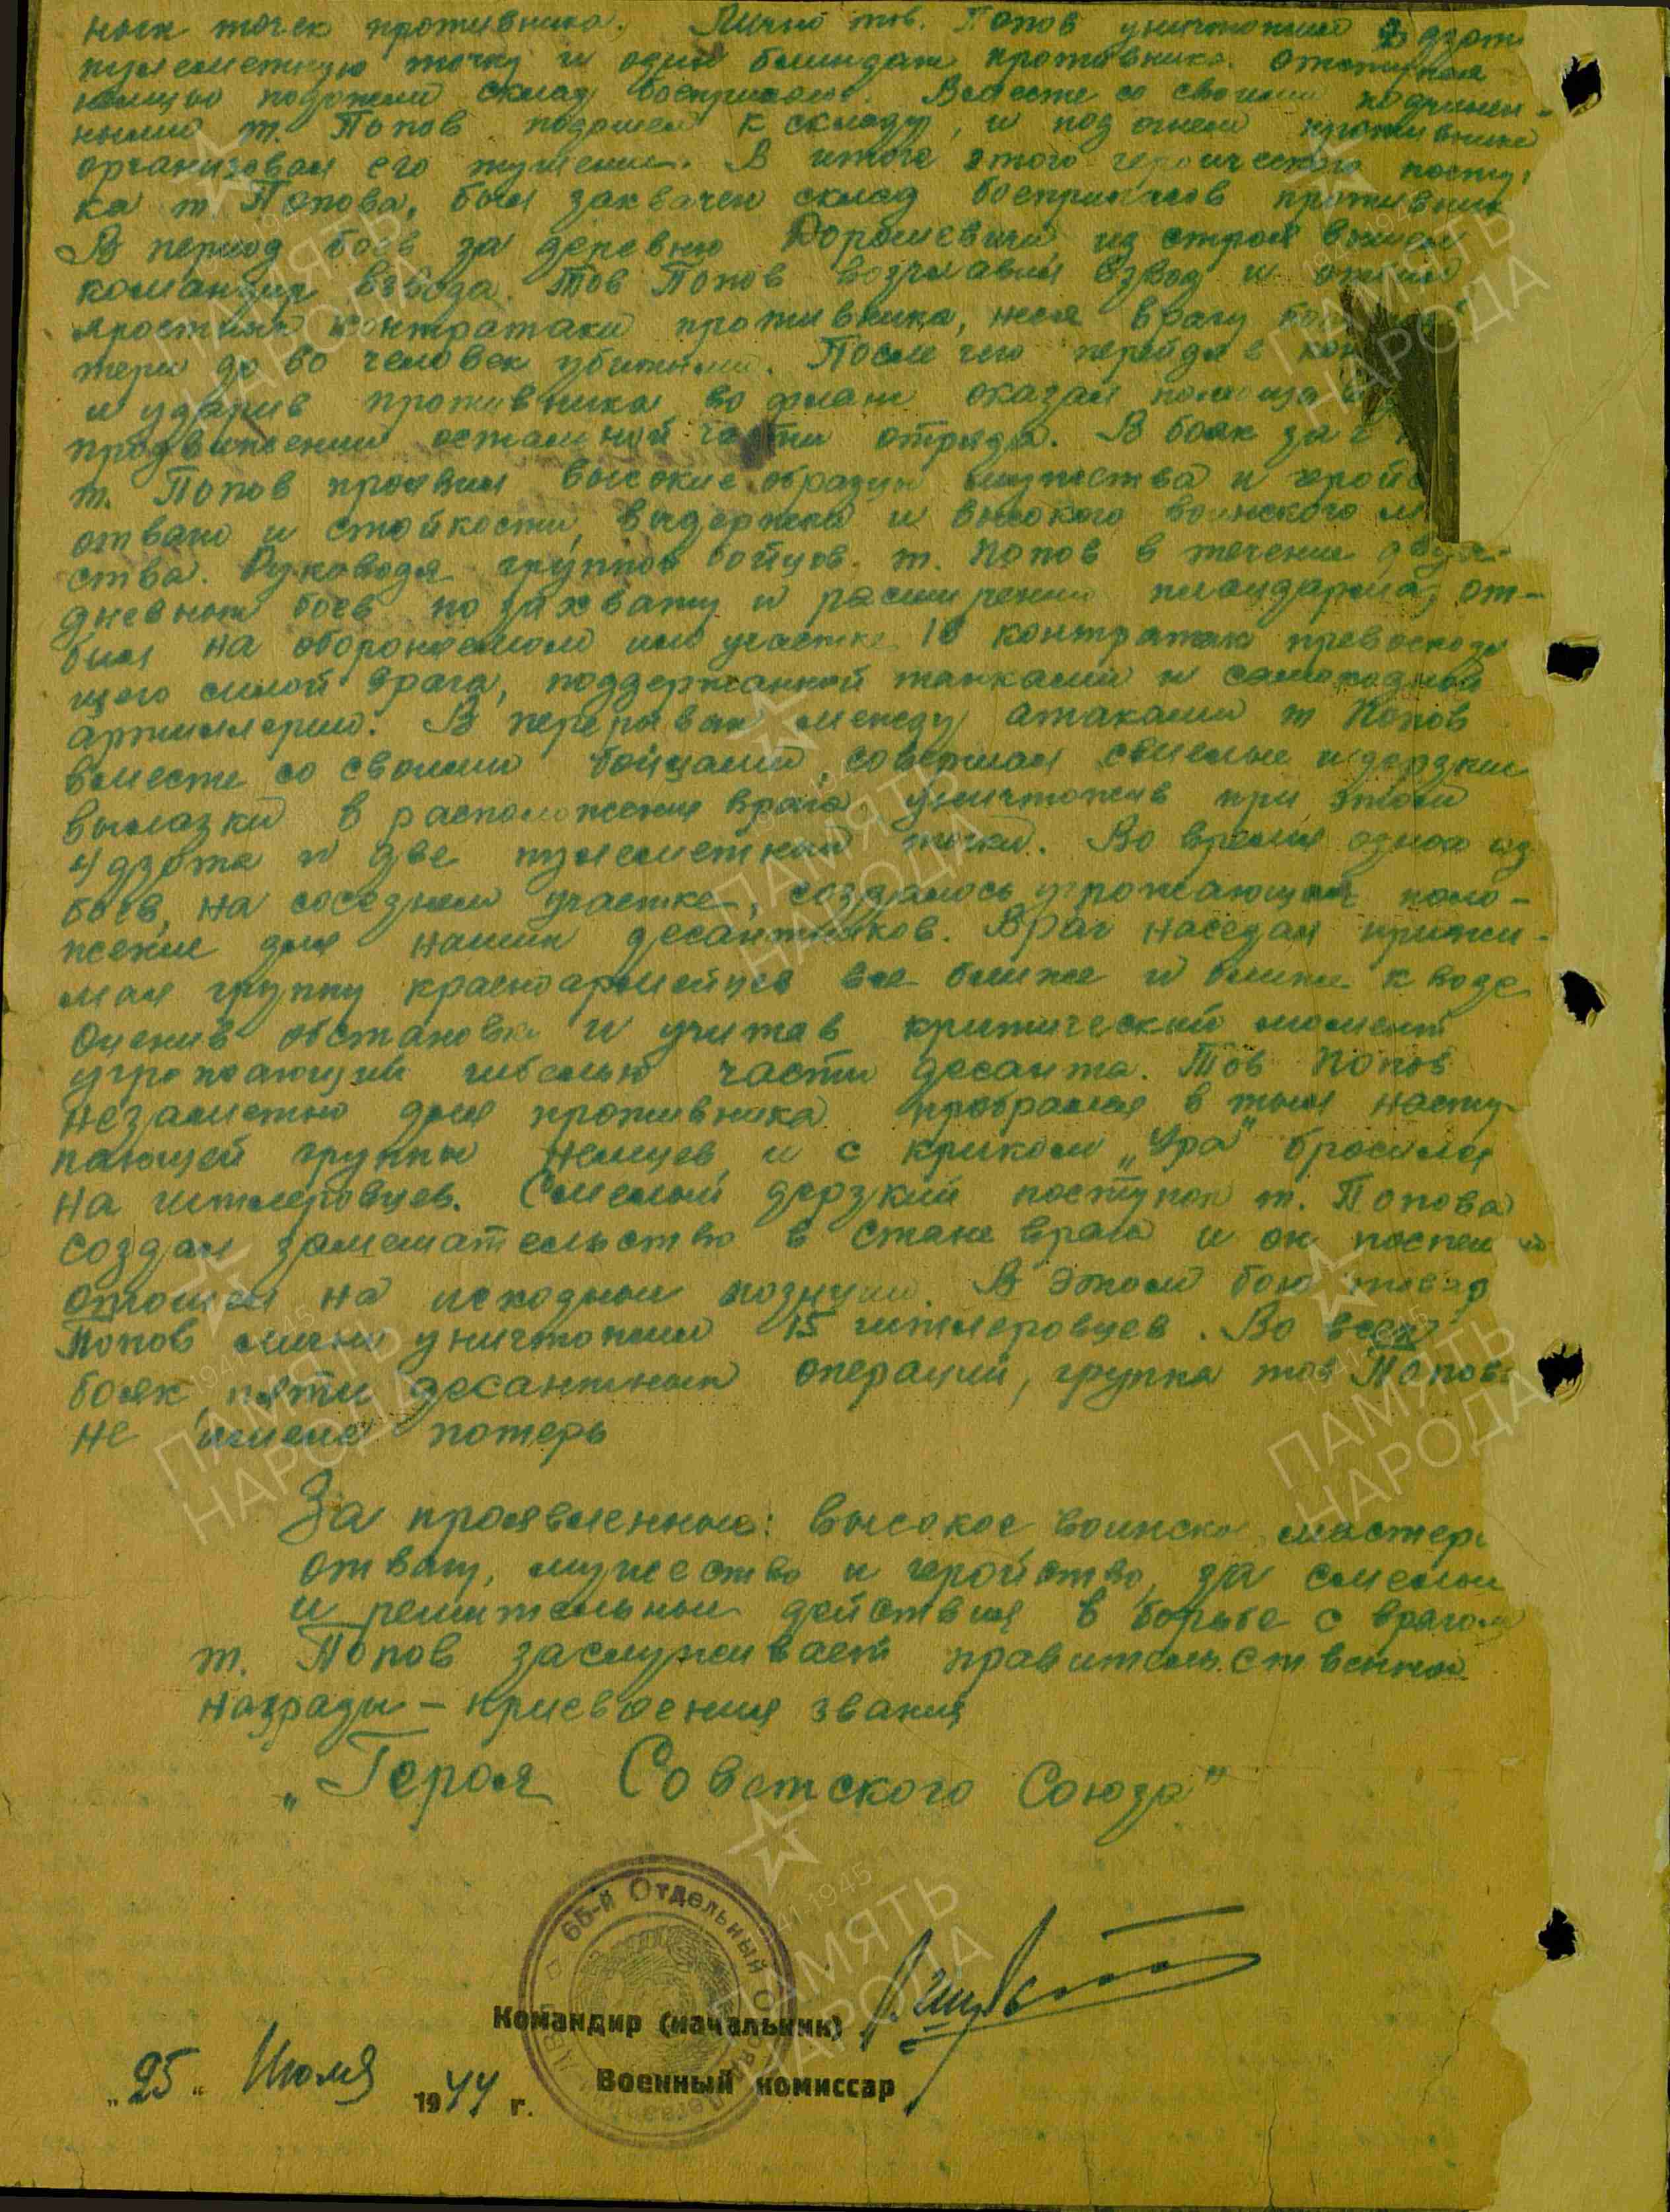 ных точек противника. Лично тов. Попов уничтожил дзот
пулеметную точку и один блиндаж противника. Отступая
немцы подожгли склад боеприпасов. Вместе со своими подчинен-
ными т. Попов подошел к складу, и под огнем противника
организовал его тушение. В итоге этого героического поступ
ка т. Попова, был захвачен склад боеприпасов противник
В период боев за деревню Дорошевичи из строя вышел
командир взвода. Тов Попов возглавил взвод и отбил
яростные контратаки противника, неся врагу
тери до 80 человек убитыми. После чего перейдя в кон
и ударив противника во фланг оказал помощь в
продвижении остальной части отряда. В боях за г
т. Попов проявил высокие образцы мужества и геройс
отваги и стойкости, выдержки и высокого воинского м
ства. Руководя группой бойцов, т. Попов в течение двух-
дневных боев по захвату и расширению плацдарма, от-
бил на обороняемом им участке 18 контратак превосходя
щего силой врага, поддержанной танками и самоходной
артиллерии. В перерывах между атаками т Попов
вместе со своими бойцами, совершал смелые и дерзкие
вылазки в расположение врага уничтожив при этом
4 дзота и две пулеметных точки. Во время одного из
боев, на соседнем участке, создалось угрожающее поло-
жение для наших десантников. Враг наседал прижи-
мая группу красноармейцев все ближе и ближе к воде
Оценив обстановку и учитав критический момент
угрожающий гибелью части десанта. Тов Попов
незаметно для противника пробрался в тыл насту-
пающей группы немцев и с криком „Ура" бросился
на гитлеровцев. Смелый дерзкий поступок т. Попова
создал замешательство в стане врага и он поспешно
отошел на исходные позиции. В этом бою товар
Попов лично уничтожил 15 гитлеровцев. Во всех
боях, пяти десантных операций, группа тов Попова
не имеет потерь
За проявленные: высокое воинское мастерс
отвагу, мужество и геройство, за смелые
и решительные действия в борьбе с врагом
т. Попов заслуживает правительственной
награды – присвоения звания
„Героя Советского Союза"
65-й Отдельный
Командир (начальник)
Военный комиссар
„25" Июля 1944 г.
ПАМЯТЬ
НАРОДА
1941-1945
ПАМЯТЬ
НАРОДА
1941-1945
ПАМЯТЬ
НАРОДА
1941-1945
ПАМЯТЬ
НАРОДА
1941-1945
ПАМЯТЬ
НАРОДА
1941-1945
ПАМЯТЬ
НАРОДА
1941-1945